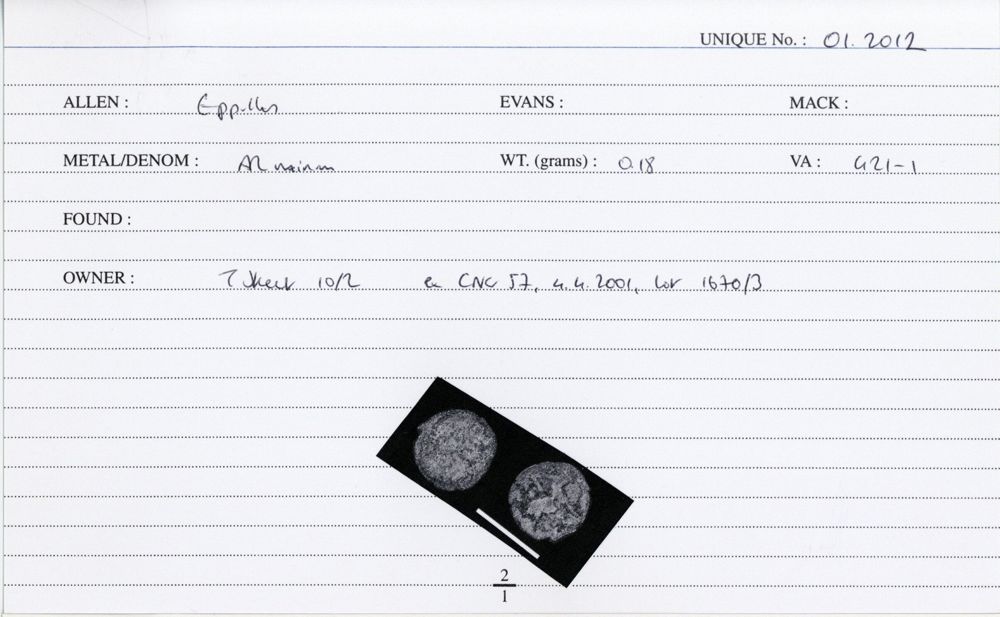 UNIQUE No. : 01.2012
ALLEN : Eppillus EVANS : MACK :
METAL/DENOM : AR minim WT. (grams) : 0.18 VA : 421-1
FOUND :
OWNER : 10/2 ex CNG 57, 4.4.2001, lot 1670/3
2
1